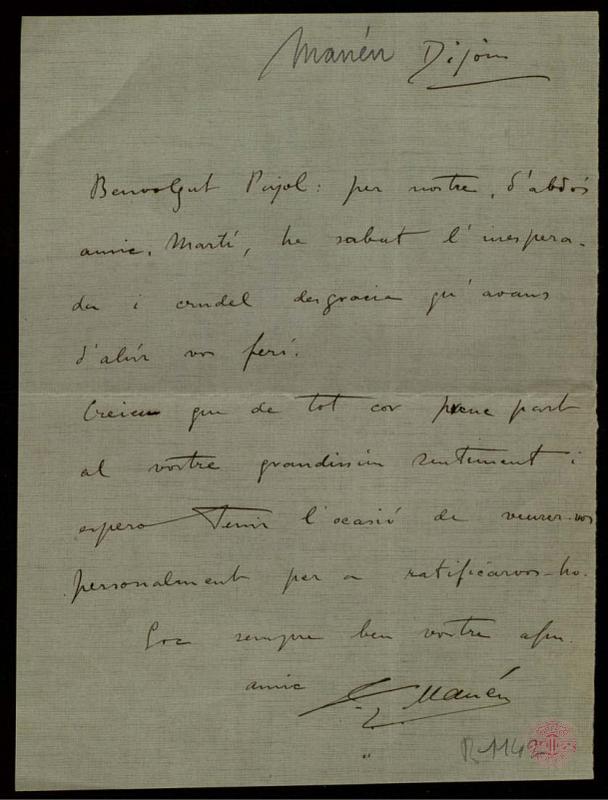 Manén Dijous
Benvolgut Pujol: per nostre, d'abdós
amic, Martí, he sabut l'inespera-
da i crudel desgracia qu'avans
d'ahir vos ferí.
Creieu que de tot cor prenc part
al vostre grandissim sentiment i
espero tenir l'ocasió de veurer-vos
personalment per a ratificárvos-ho.
Soc sempre ben vostre afm.
amic Manén
R. 1142